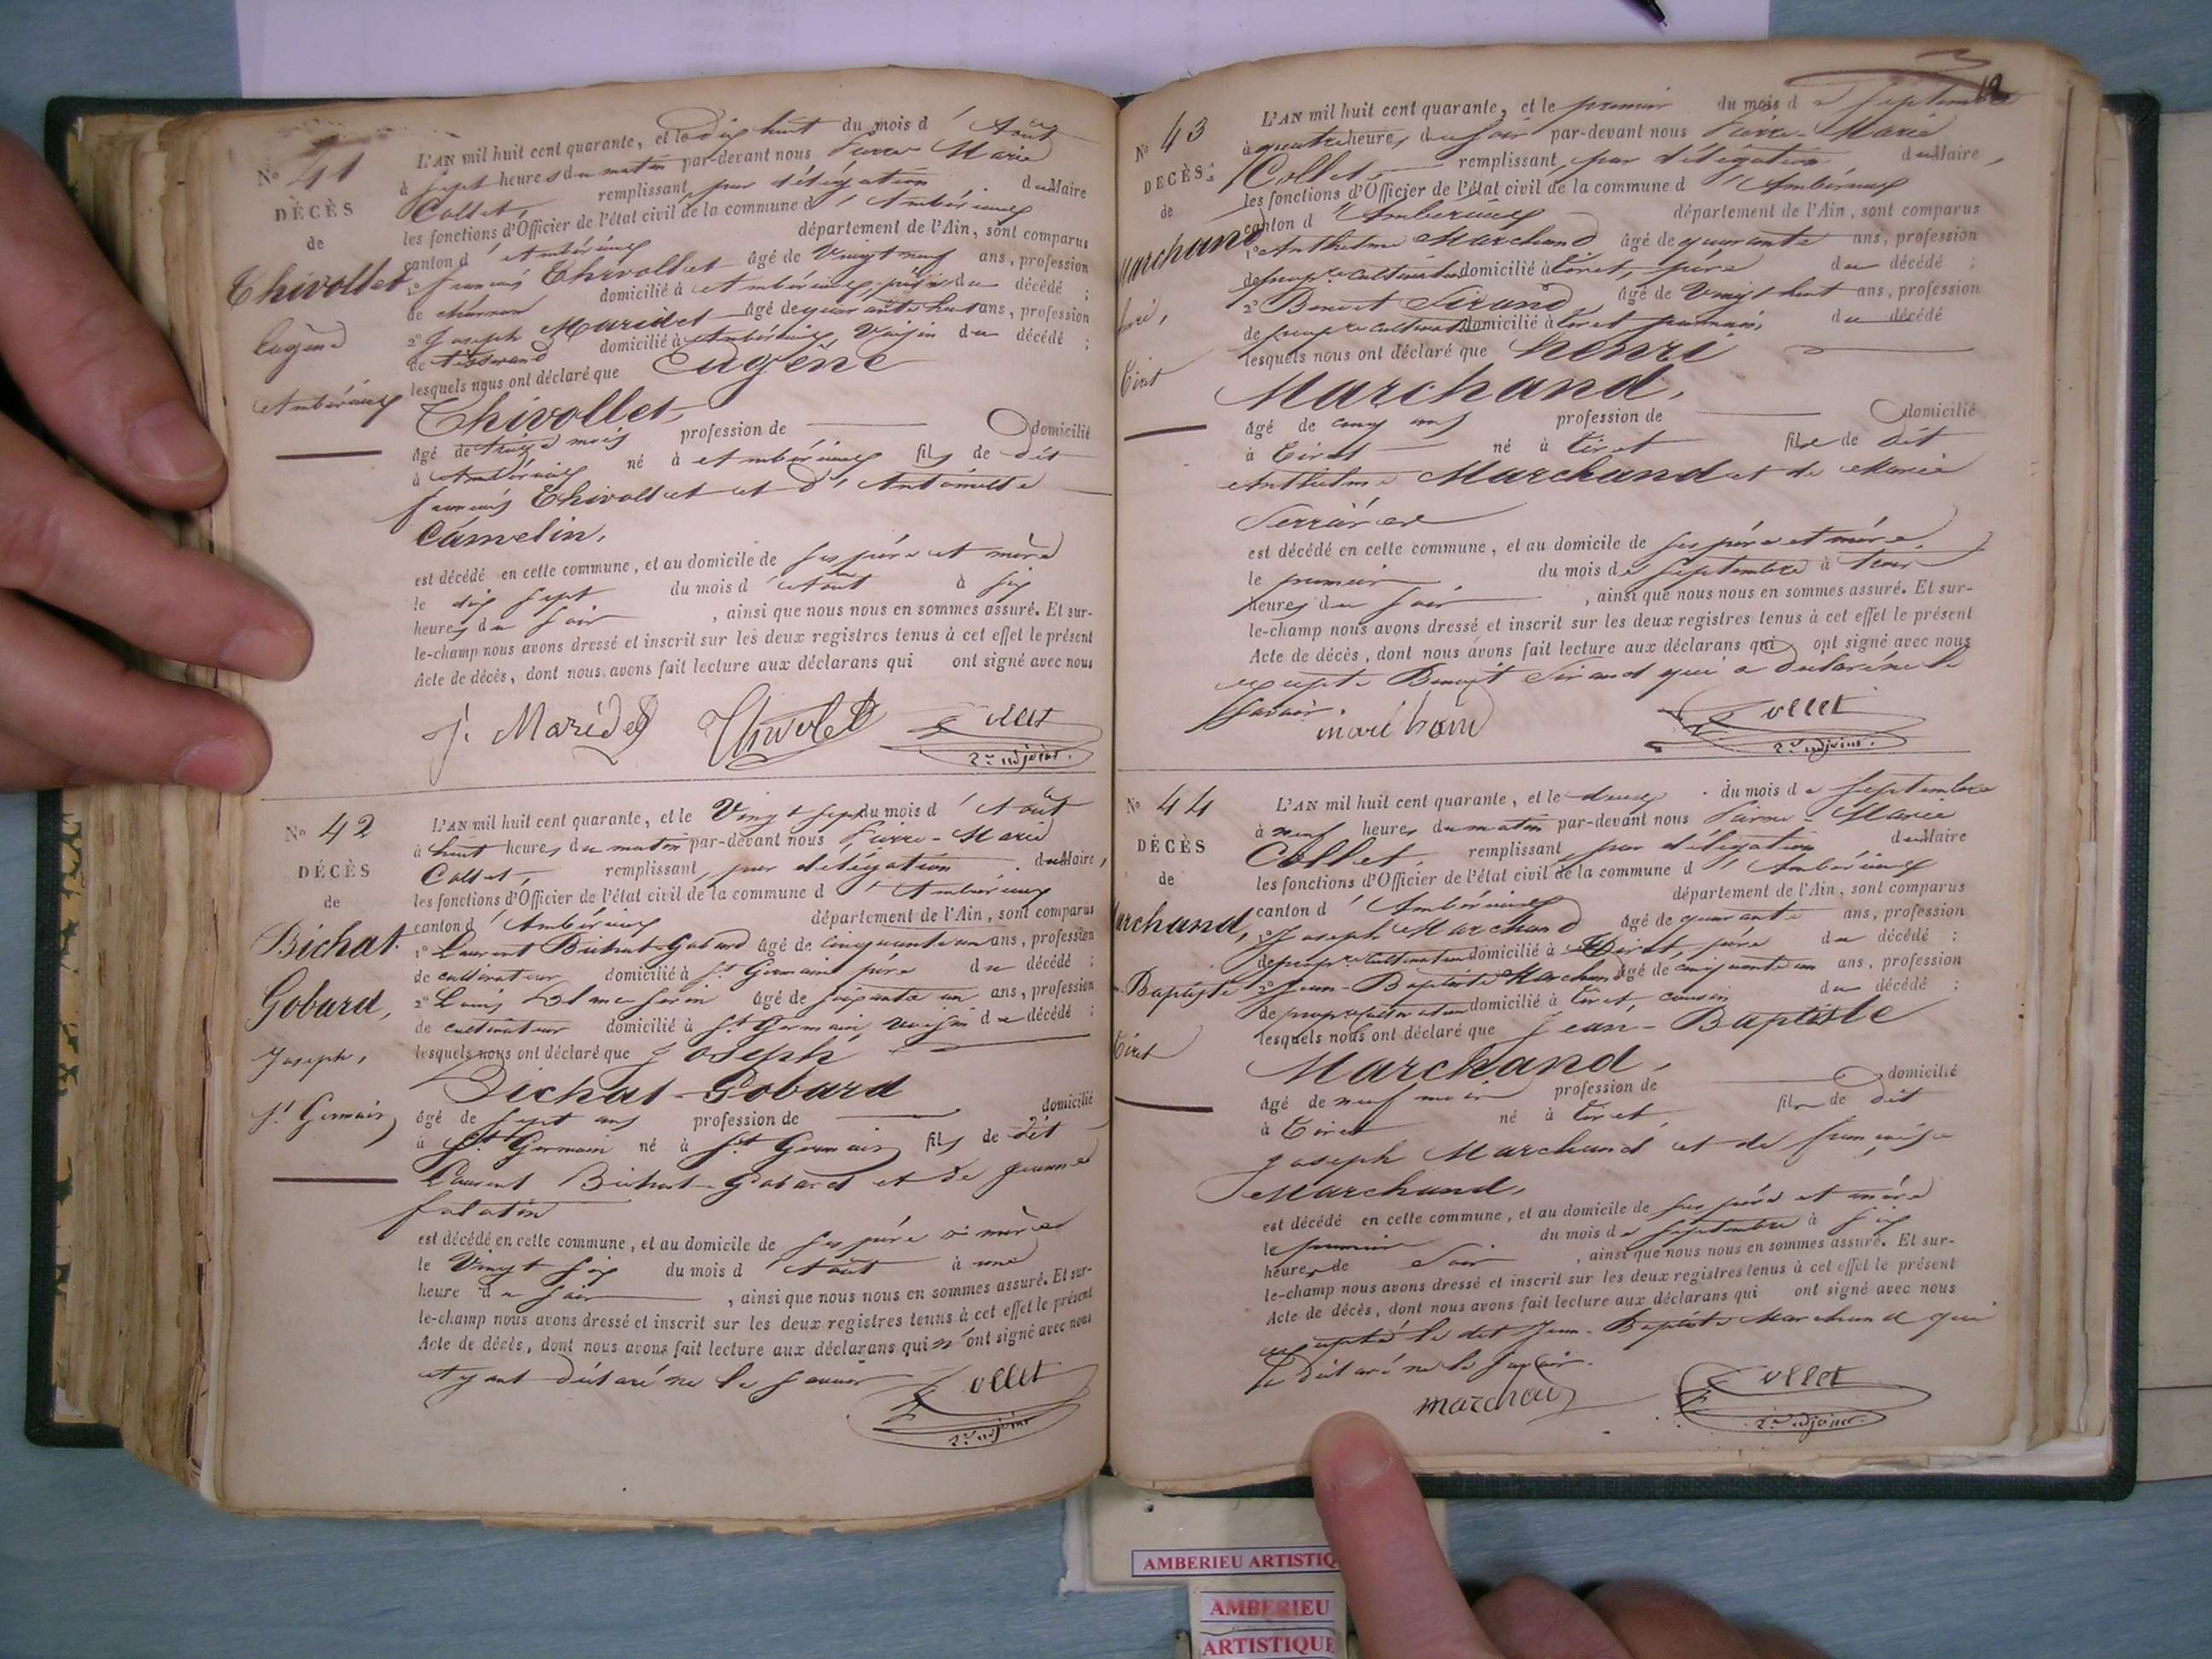 N° 41
DÉCÈS
de
Thivollet
Eugène
Ambérieux
L'AN mil huit cent quarante, et le dix huit du mois d'Août
à sept heures du matin par-devant nous Pierre Marie
Collet, remplissant par délégation du Maire
les fonctions d'Officier de l'état civil de la commune d'Ambérieux
canton d'Ambérieux département de l'Ain, sont comparus
1° françois Thivollet âgé de Vingt neuf ans, profession
de domicilié à Ambérieux, père du décédé ;
2° Joseph Maridet âgé de quarante huit ans, profession
de tisserand domicilié à Ambérieux Voisin du décédé ;
lesquels nous ont déclaré que Eugène
Thivollet,
âgé de treize mois profession de domicilié
à Ambérieux né à Ambérieux fils de dit
françois Thivollet et d'Antoinette
Camelin,
est décédé en cette commune, et au domicile de ses père et mère
le dix sept du mois d'Août à six
heures du soir, ainsi que nous nous en sommes assuré. Et sur-
le-champ nous avons dressé et inscrit sur les deux registres tenus à cet effet le présent
Acte de décès, dont nous avons fait lecture aux déclarans qui ont signé avec nous
J. Maridet Thivolet Collet
2e adjoint.
N° 42
DÉCÈS
de
Bichat
Gobard,
Joseph,
St Germain
L'AN mil huit cent quarante, et le Vingt sept du mois d'Août
à huit heures du matin par-devant nous Pierre-Marie
Collet, remplissant, par délégation du Maire,
les fonctions d'Officier de l'état civil de la commune d'Ambérieux
canton d'Ambérieux département de l'Ain, sont comparus
1° Laurent Bichat-Gobard âgé de cinquante un ans, profession
de cultivateur domicilié à St Germain père du décédé ;
2° Louis Blanc âgé de soixante un ans, profession
de cultivateur domicilié à St Germain, voisin du décédé ;
lesquels nous ont déclaré que Joseph
Bichat-Gobard
âgé de sept ans profession de domicilié
à St Germain né à St Germain fils de dit
Laurent Bichat-Gobard et de jeanne
falatin
est décédé en cette commune, et au domicile de ses père & mère
le Vingt six du mois d'Août à une
heure du soir, ainsi que nous nous en sommes assuré. Et sur-
le-champ nous avons dressé et inscrit sur les deux registres tenus à cet effet le présent
Acte de décès, dont nous avons fait lecture aux déclarans qui n'ont signé avec nous
ayant déclaré ne le savoir
Collet
2e adjoint
12
N° 43
DÉCÈS
de
Marchand
henri,
Tiret
L'AN mil huit cent quarante, et le premier du mois de Septembre
à quatre heures du soir par-devant nous Pierre-Marie
Collet, remplissant, par délégation du Maire,
les fonctions d'Officier de l'état civil de la commune d'Ambérieux
canton d'Ambérieux département de l'Ain, sont comparus
1° Anthelme Marchand âgé de quarante ans, profession
de propre cultivateur domicilié à Tiret, père du décédé ;
2° Benoit Sirand, âgé de Vingt huit ans, profession
de propre cultivat domicilié à Tiret, du décédé
lesquels nous ont déclaré que henri
Marchand,
âgé de cinq ans profession de domicilié
à Tiret né à Tiret fils de dit
Anthelme Marchand et de Marie

est décédé en cette commune, et au domicile de ses père et mère,
le premier du mois de Septembre à trois
heures du soir, ainsi que nous nous en sommes assuré. Et sur-
le-champ nous avons dressé et inscrit sur les deux registres tenus à cet effet le présent
Acte de décès, dont nous avons fait lecture aux déclarans qui ont signé avec nous
excepté Benoit Sirand qui a déclaré ne le
savoir.
marchand Collet
2e adjoint.
N° 44
DÉCÈS
de
Marchand,
-Baptiste
Tiret
L'AN mil huit cent quarante, et le deux du mois de Septembre
à neuf heures du matin par-devant nous Pierre-Marie
Collet, remplissant, par délégation du Maire
les fonctions d'Officier de l'état civil de la commune d'Ambérieux
canton d'Ambérieux département de l'Ain, sont comparus
1° Joseph Marchand âgé de quarante ans, profession
de propre cultivateur domicilié à Tiret, père du décédé ;
2° Jean-Baptiste Marchand âgé de cinquante un ans, profession
de propre cultivateur domicilié à Tiret, cousin du décédé ;
lesquels nous ont déclaré que Jean-Baptiste
Marchand,
âgé de neuf mois profession de domicilié
à Tiret né à Tiret, fils de dit
Joseph Marchand et de françoise
Marchand,
est décédé en cette commune, et au domicile de ses père et mère
le premier du mois de Septembre à six
heures de Soir, ainsi que nous nous en sommes assuré. Et sur-
le-champ nous avons dressé et inscrit sur les deux registres tenus à cet effet le présent
Acte de décès, dont nous avons fait lecture aux déclarans qui ont signé avec nous
excepté le dit Jean-Baptiste Marchand qui
a déclaré ne le savoir.
marchand Collet
2e adjoint.
AMBERIEU ARTISTIQ
AMBERIEU
ARTISTIQUE